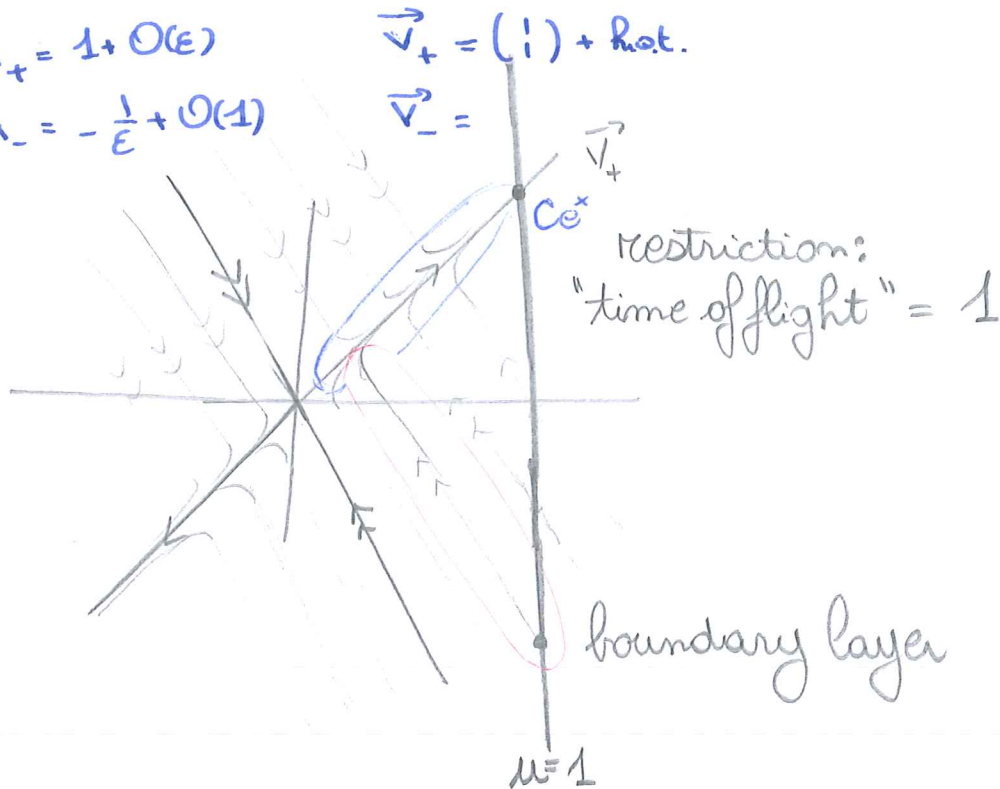 ₊ = 1 + O(ε)
V⃗₊ = (1 1) + h.o.t.
₋ = - 1/ε + O(1)
V⃗₋ =
V⃗₊
Ceˣ
restriction:
"time of flight" = 1
boundary layer
u=1